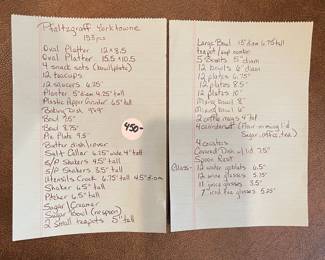 Pfaltzgraff Yorktowne
153 pcs
Oval Platter 12 x 8.5
Oval Platter 15.5 x 10.5
4 snack sets (bowl/plate)
12 teacups
12 saucers 6.25"
Planter 5" diam 4.25" tall
Plastic Pepper Grinder 6.5" tall
Baking Dish 9x9"
Bowl 7.5"
Bowl 8.75"
Pie Plate 9.5"
Butter dish/cover
Salt Cellar 6.25" wide 4" tall
S/P Shakers 4.5" tall
S/P Shakers 3.5" tall
Utensils Crock 6.75" tall 4.5" diam
Shaker 6.5" tall
Pitcher 6.5" tall
Sugar/Creamer
Sugar Bowl (no spoon)
2 Small teapots 5" tall
450-
Large Bowl 13" diam 6.75" tall
teapot/cup
5 Bowls 5" diam
12 bowls 6" diam
12 plates 6.75"
12 plates 8.5"
12 plates 10"
Mixing Bowl 8"
Mixing bowl 6"
12 coffee mugs 4" tall
4 canisters (Flour-missing lid
Sugar, coffee, tea)
4 coasters
Covered Dish w/ lid 7.5"
Spoon Rest
Glass- 12 water goblets 6.5"
12 wine glasses 5.75"
11 juice glasses 3.5"
7 iced tea glasses 5.25"